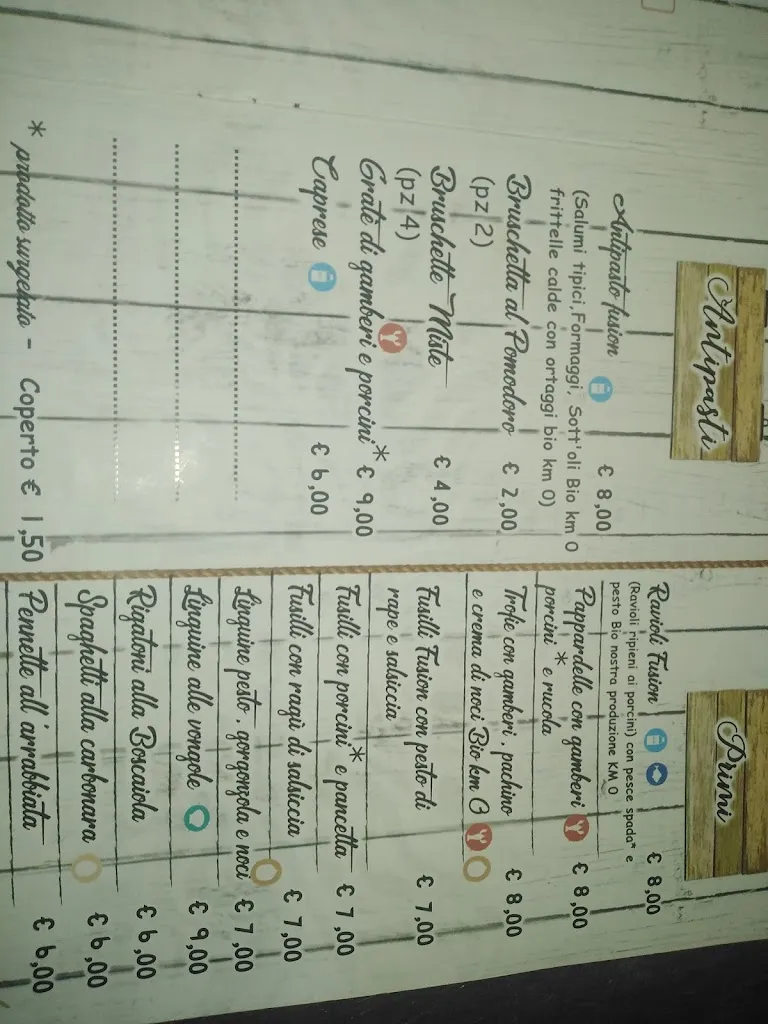 Antipasti
Antipasto fusion € 8,00
(Salumi tipici, Formaggi, Sott'oli Bio km 0
frittelle calde con ortaggi bio km 0)
Bruschetta al Pomodoro € 2,00
(pz 2)
Bruschette Miste € 4,00
(pz 4)
Gratè di gamberi e porcini* € 9,00
Caprese € 6,00
* prodotto surgelato - Coperto € 1,50
Primi
Ravioli Fusion € 8,00
(Ravioli ripieni ai porcini) con pesce spada* e
pesto Bio nostra produzione KM 0
Pappardelle con gamberi € 8,00
porcini* e rucola
Trofie con gamberi, pachino € 8,00
e crema di noci Bio km 0
Fusilli Fusion con pesto di € 7,00
rape e salsiccia
Fusilli con porcini* e pancetta € 7,00
Fusilli con ragù di salsiccia € 7,00
Linguine pesto, gorgonzola e noci € 7,00
Linguine alle vongole € 9,00
Rigatoni alla Boscaiola € 6,00
Spaghetti alla carbonara € 6,00
Pennette all'arrabbiata € 6,00